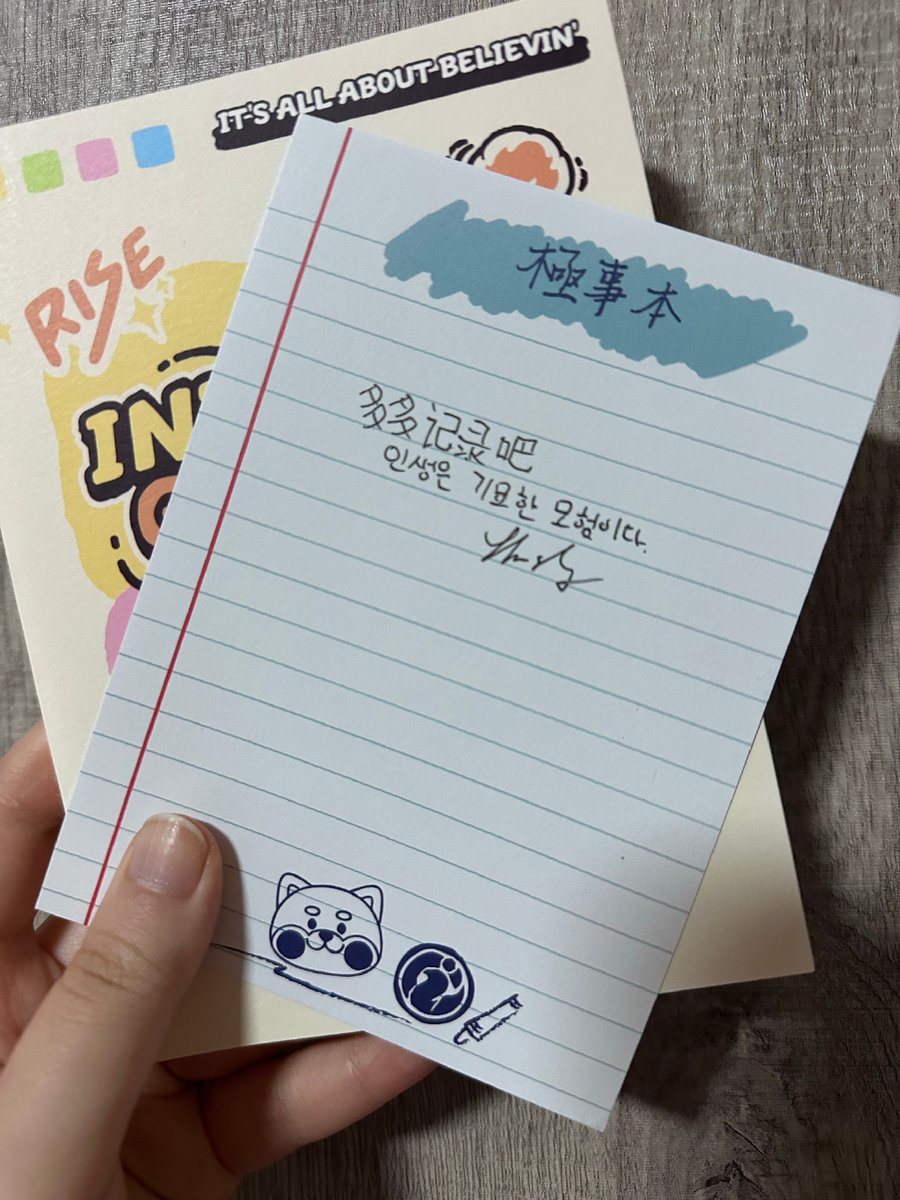 IT'S ALL ABOUT BELIEVIN'
RISE
IN
極事本
多多记录吧
인생은 기묘한 모험이다.